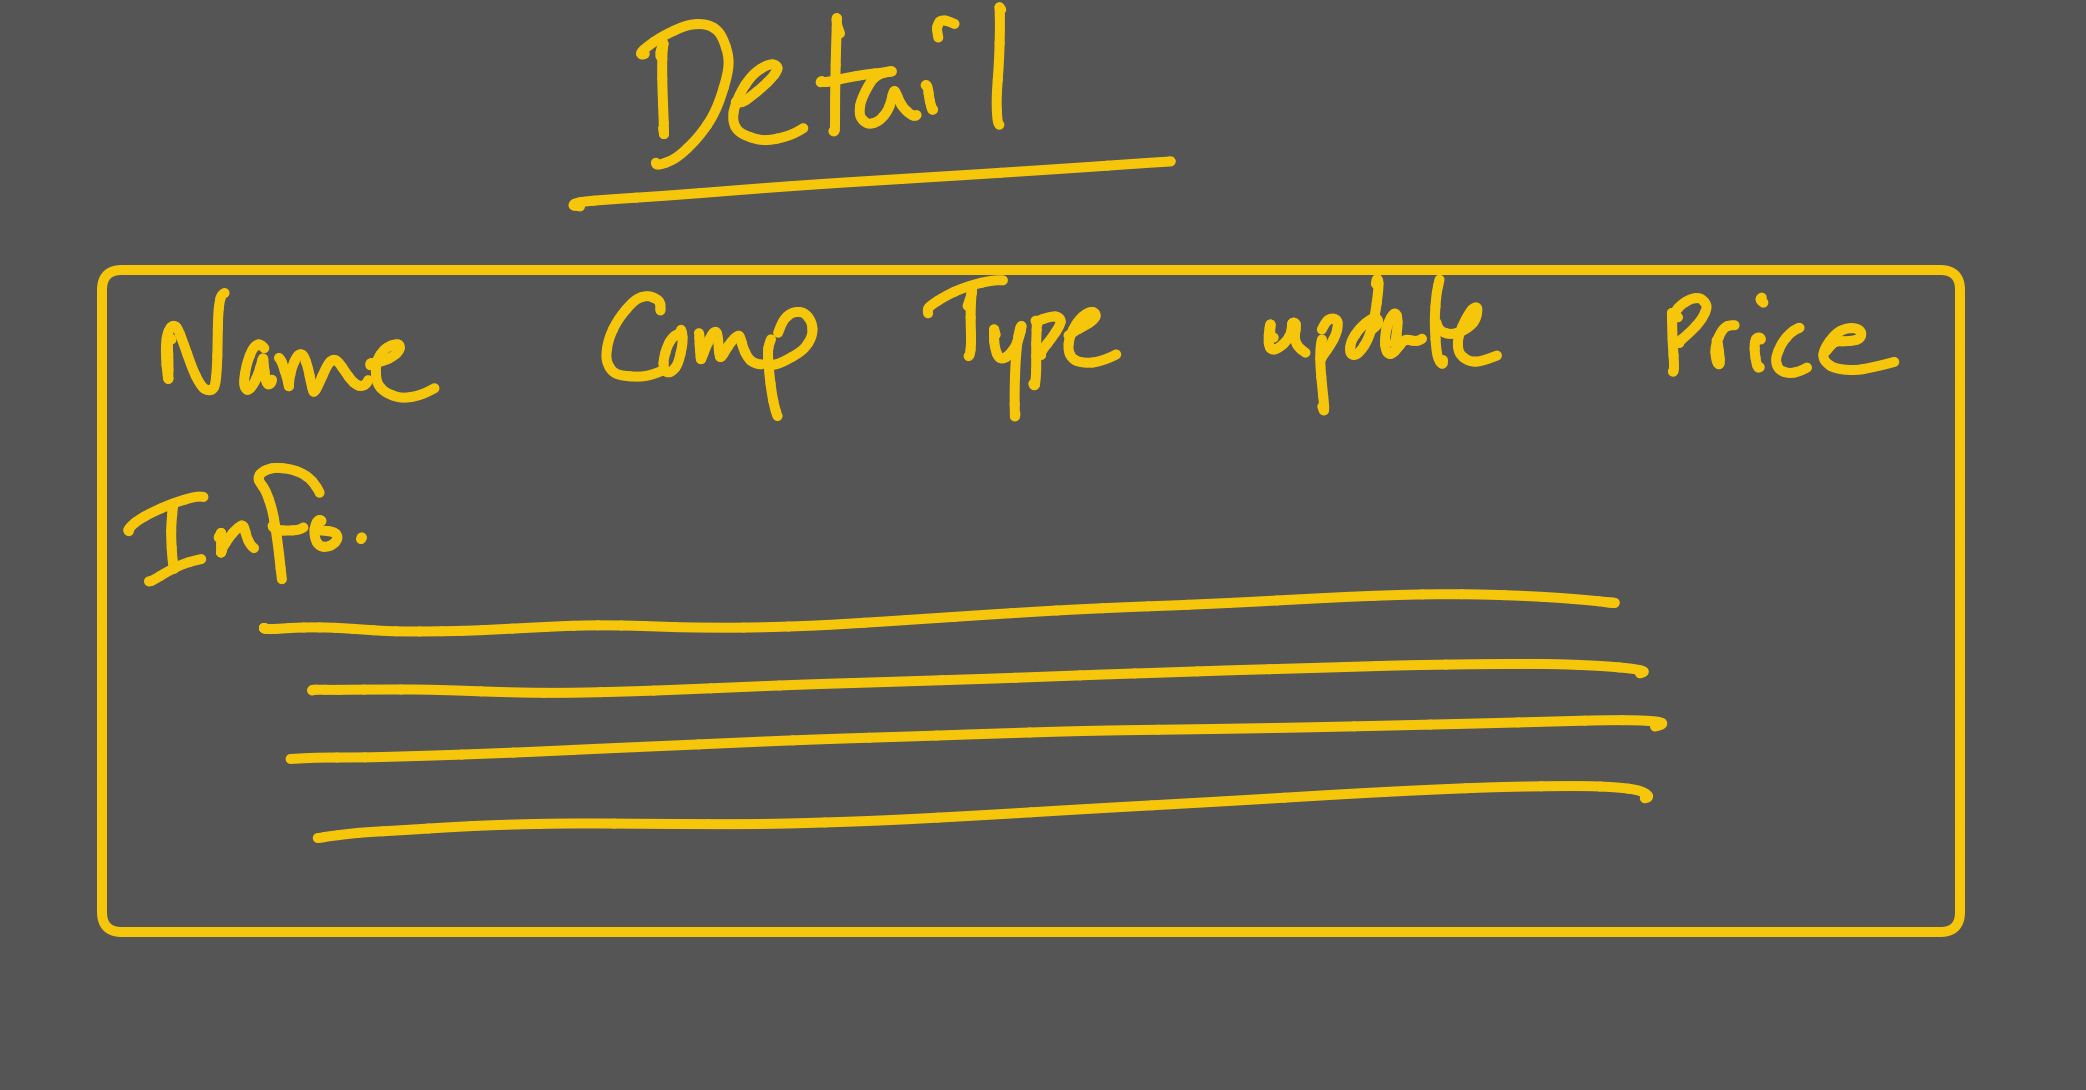 Detail
Name Comp Type update Price
Info.